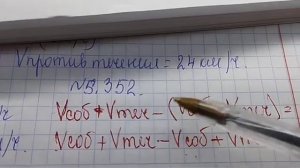 Vпротив течения = 24 км/ч.
№5.352.
Vсоб + Vтеч - (Vсоб - Vтеч) =
Vсоб + Vтеч - Vсоб + Vт